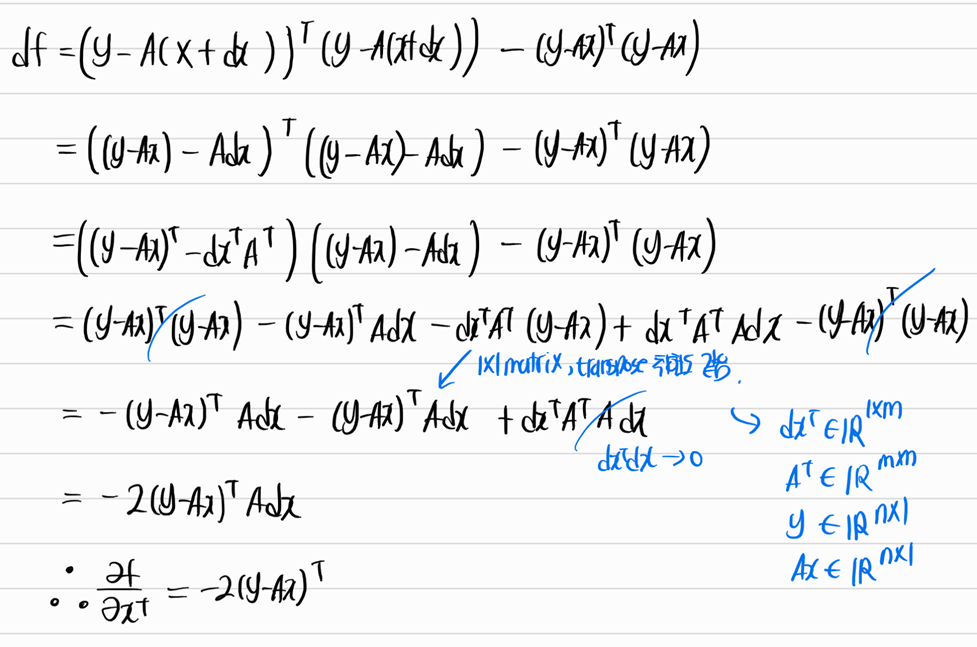 df = (y-A(x+dx))ᵀ(y-A(x+dx)) - (y-Ax)ᵀ(y-Ax)
= ((y-Ax) - Adx)ᵀ((y-Ax)-Adx) - (y-Ax)ᵀ(y-Ax)
= ((y-Ax)ᵀ - dxᵀAᵀ)((y-Ax)-Adx) - (y-Ax)ᵀ(y-Ax)
= (y-Ax)ᵀ(y-Ax) - (y-Ax)ᵀAdx - dxᵀAᵀ(y-Ax) + dxᵀAᵀAdx - (y-Ax)ᵀ(y-Ax)
1x1 matrix, transpose
= -(y-Ax)ᵀ Adx - (y-Ax)ᵀ Adx + dxᵀAᵀAdx
dxᵀdx → 0
↳ dxᵀ ∈ ℝ^{1xm}
Aᵀ ∈ ℝ^{mxn}
y ∈ ℝ^{nx1}
Ax ∈ ℝ^{nx1}
= -2(y-Ax)ᵀ Adx
∴ ∂f/∂xᵀ = -2(y-Ax)ᵀ